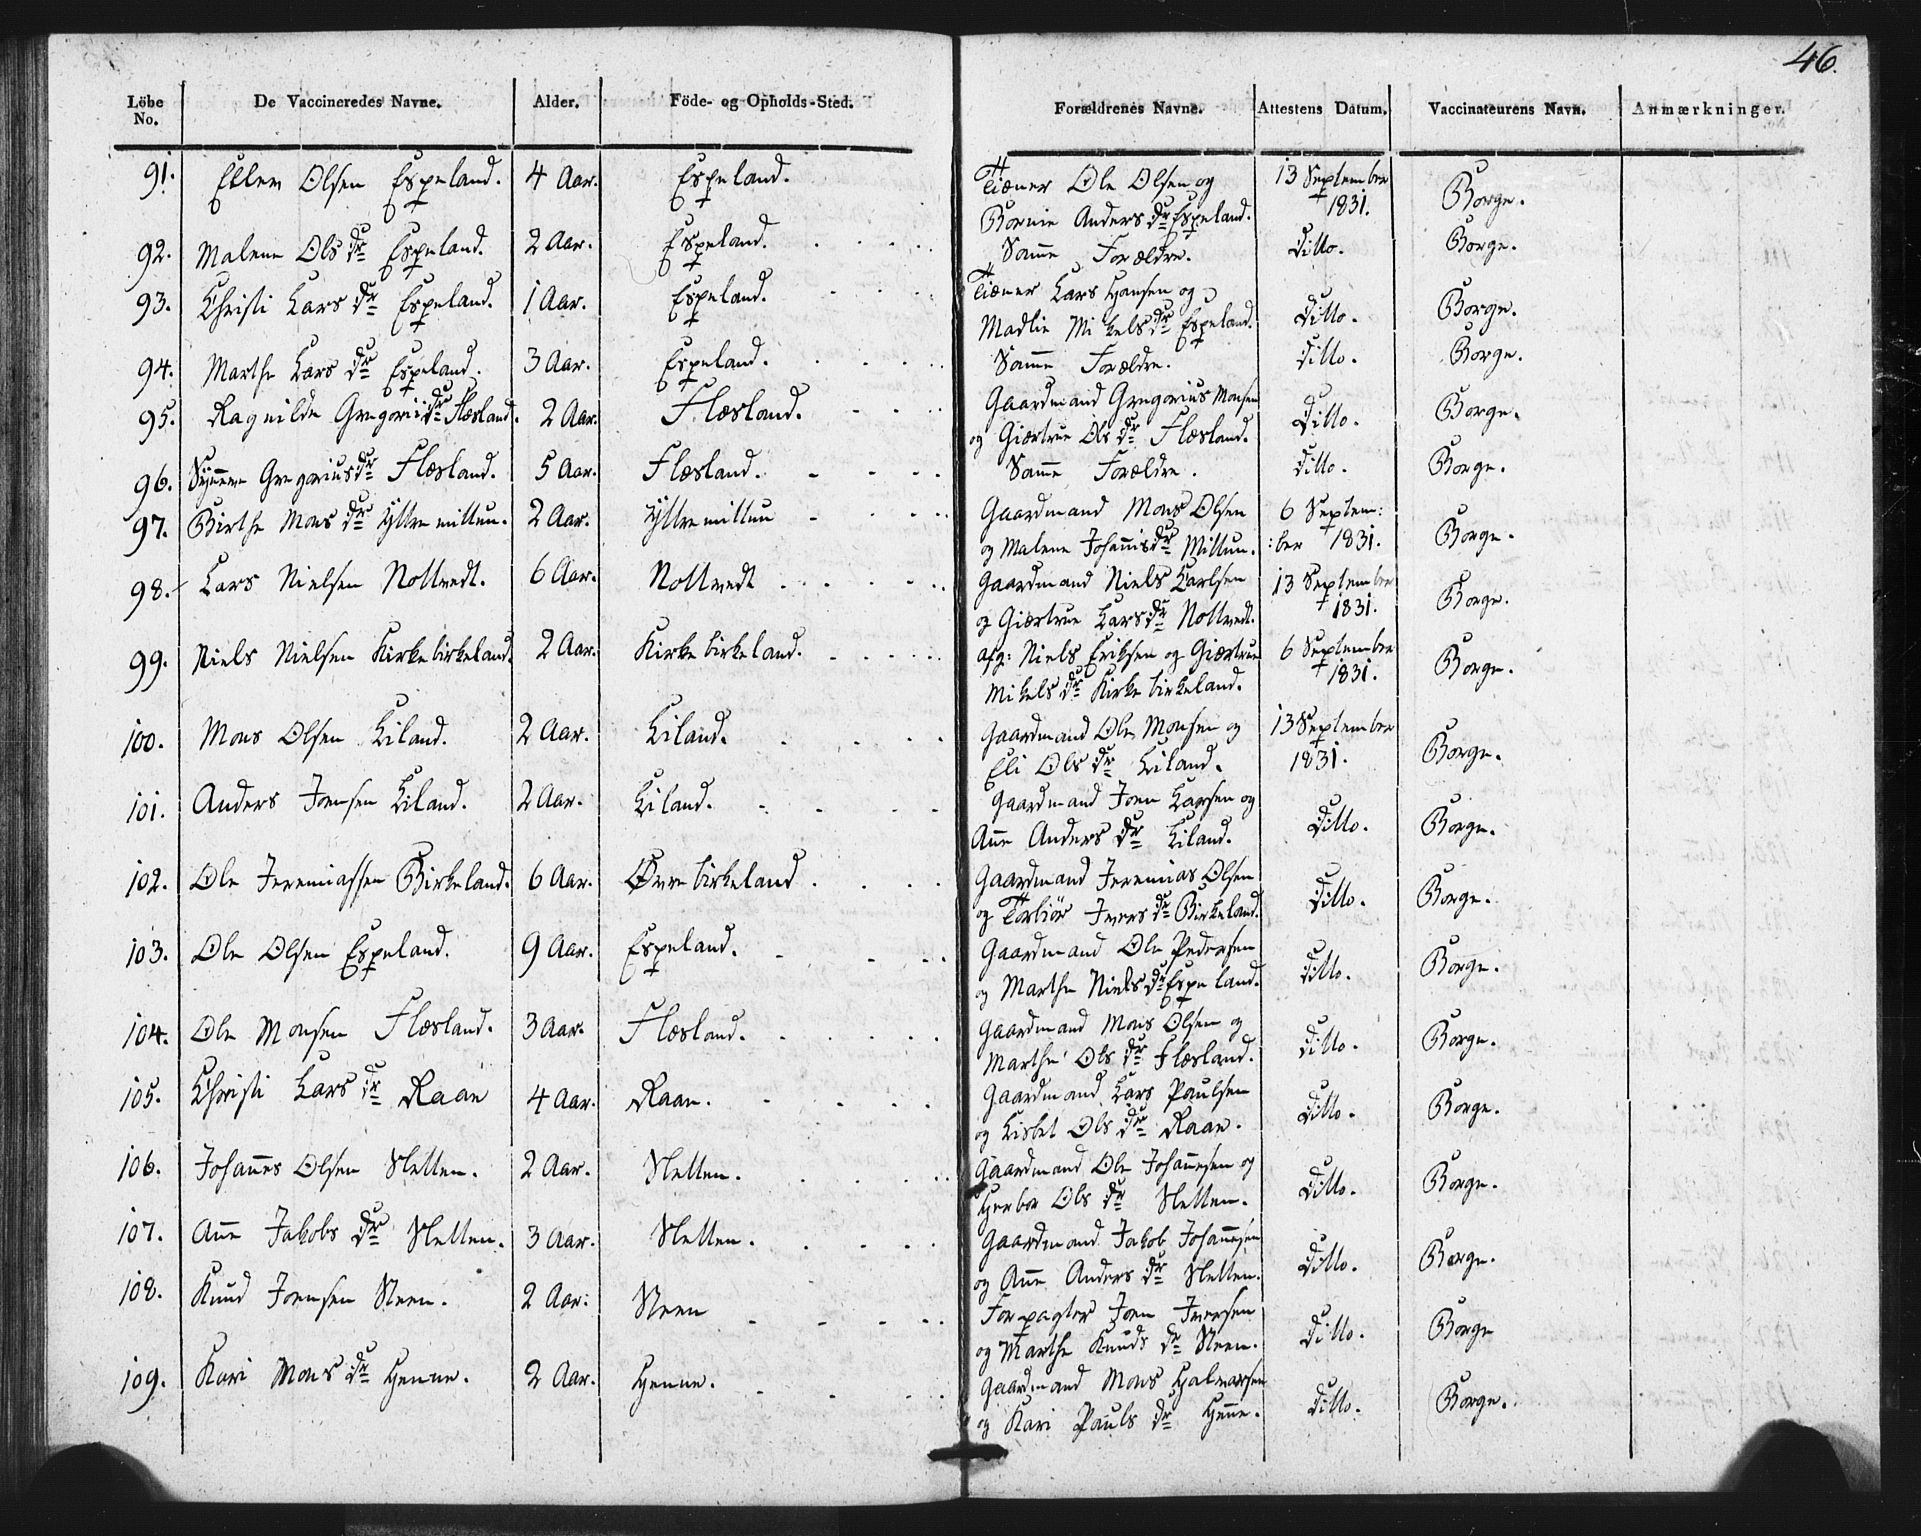 46.
Löbe No. De Vaccineredes Navne. Alder. Föde- og Opholds-Sted. Forældrenes Navne. Attestens Datum. Vaccinateurens Navn. Anmærkninger.
91. Ellen Olsen Espeland. 4 Aar. Espeland. Tiæner Ole Olsen og 13 September
Anders dr Espeland. 1831. Borge.
92. Malene Ols dr Espeland. 2 Aar. Espeland. Samme Forældre. Ditto. Borge.
93. Christi Lars dr Espeland. 1 Aar. Espeland. Tiæner Lars Hansen og
Madlie Mikels dr Espeland. Ditto. Borge.
94. Marthe Lars dr Espeland. 3 Aar. Espeland. Samme Forældre. Ditto. Borge.
95. Ragnilde Gregorii dr Flæsland. 2 Aar. Flæsland. Gaardmand Gregorius Monsen
og Giærtrue Ols dr Flæsland. Ditto. Borge.
96. Synneve Gregorius dr Flæsland. 5 Aar. Flæsland. Samme Forældre. Ditto. Borge.
97. Birthe Mons dr Yttremittun. 2 Aar. Yttremittun Gaardmand Mons Olsen 6 Septem:
og Malene Johannis dr Mittun. :ber 1831. Borge.
98. Lars Nielsen Nottvedt. 6 Aar. Nottvedt Gaardmand Niels Larsen 13 September
og Giærtrue Lars dr Nottvedt. 1831. Borge.
99. Niels Nielsen Kirkebirkeland. 2 Aar. Kirkebirkeland. afg: Niels Eriksen og Giærtrue 6 September
Mikels dr Kirkebirkeland. 1831. Borge.
100. Mons Olsen Liland. 2 Aar. Liland. Gaardmand Ole Monsen og 13 September
Eli Ols dr Liland. 1831. Borge.
101. Anders Joensen Liland. 2 Aar. Liland. Gaardmand Joen Larsen og
Anne Anders dr Liland. Ditto. Borge.
102. Ole Jeremiassen Birkeland. 6 Aar. Øvrebirkeland. Gaardmand Jeremias Olsen
og Torbiør Ivers dr Birkeland. Ditto. Borge.
103. Ole Olsen Espeland. 9 Aar. Espeland. Gaardmand Ole Pedersen
og Marthe Niels dr Espeland. Ditto. Borge.
104. Ole Monsen Flæsland. 3 Aar. Flæsland. Gaardmand Mons Olsen og
Marthe Ols dr Flæsland. Ditto. Borge.
105. Christi Lars dr Raae 4 Aar. Raae. Gaardmand Lars Paulsen
og Lisbet Ols dr Raae. Ditto. Borge.
106. Johannes Olsen Sletten. 2 Aar. Sletten. Gaardmand Ole Johannesen og
Herbor Ols dr Sletten. Ditto. Borge.
107. Anne Jakobs dr Sletten. 3 Aar. Sletten. Gaardmand Jakob Johannesen
og Anne Anders dr Sletten. Ditto. Borge.
108. Knud Joensen Steen. 2 Aar. Steen Forpagter Joen Iversen
og Marthe Knuds dr Steen. Ditto. Borge
109. Kari Mons dr Henne. 2 Aar. Henne. Gaardmand Mons Halvorsen
og Kari Pauls dr Henne. Ditto. Borge.